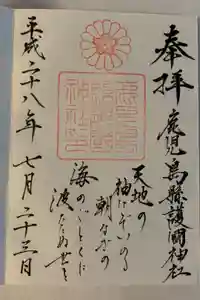 奉拝
鹿児島縣護國神社
天地の
神にぞいのる
朝なぎの
海のごとくに
波たたぬ世を
平成二十八年七月二十三日